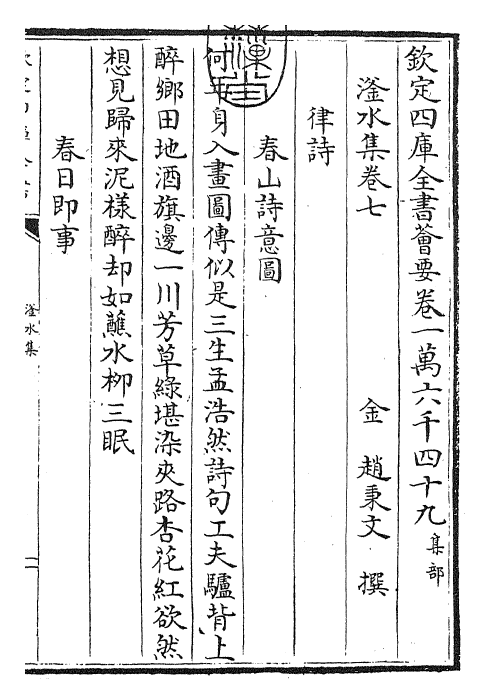 欽定四庫全書薈要卷一萬六千四十九集部
滏水集卷七 金 趙秉文 撰
律詩
春山詩意圖
何年身入畫圖傳似是三生孟浩然詩句工夫驢背上
醉鄉田地酒旗邊一川芳草綠堪染夾路杏花紅欲然
想見歸來泥樣醉却如蘸水柳三眠
春日即事
滏水集